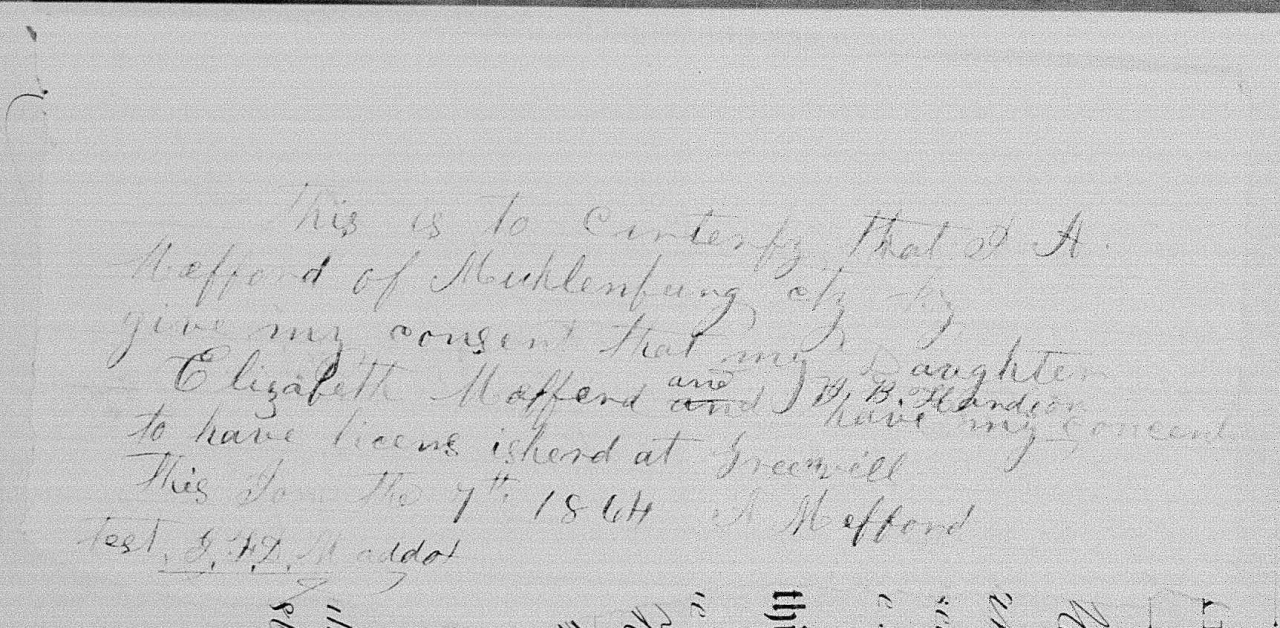 This is to Certenfy that I A.
Mefford of Muhlenburg cty ky
give my consent that my Daughter
Elizabeth Mefferd and and B. B. Hardison
have my concent
to have licens isherd at Greenvill
This Jan the 7th 1864 A Mefford
test. J. F. D. Maddox